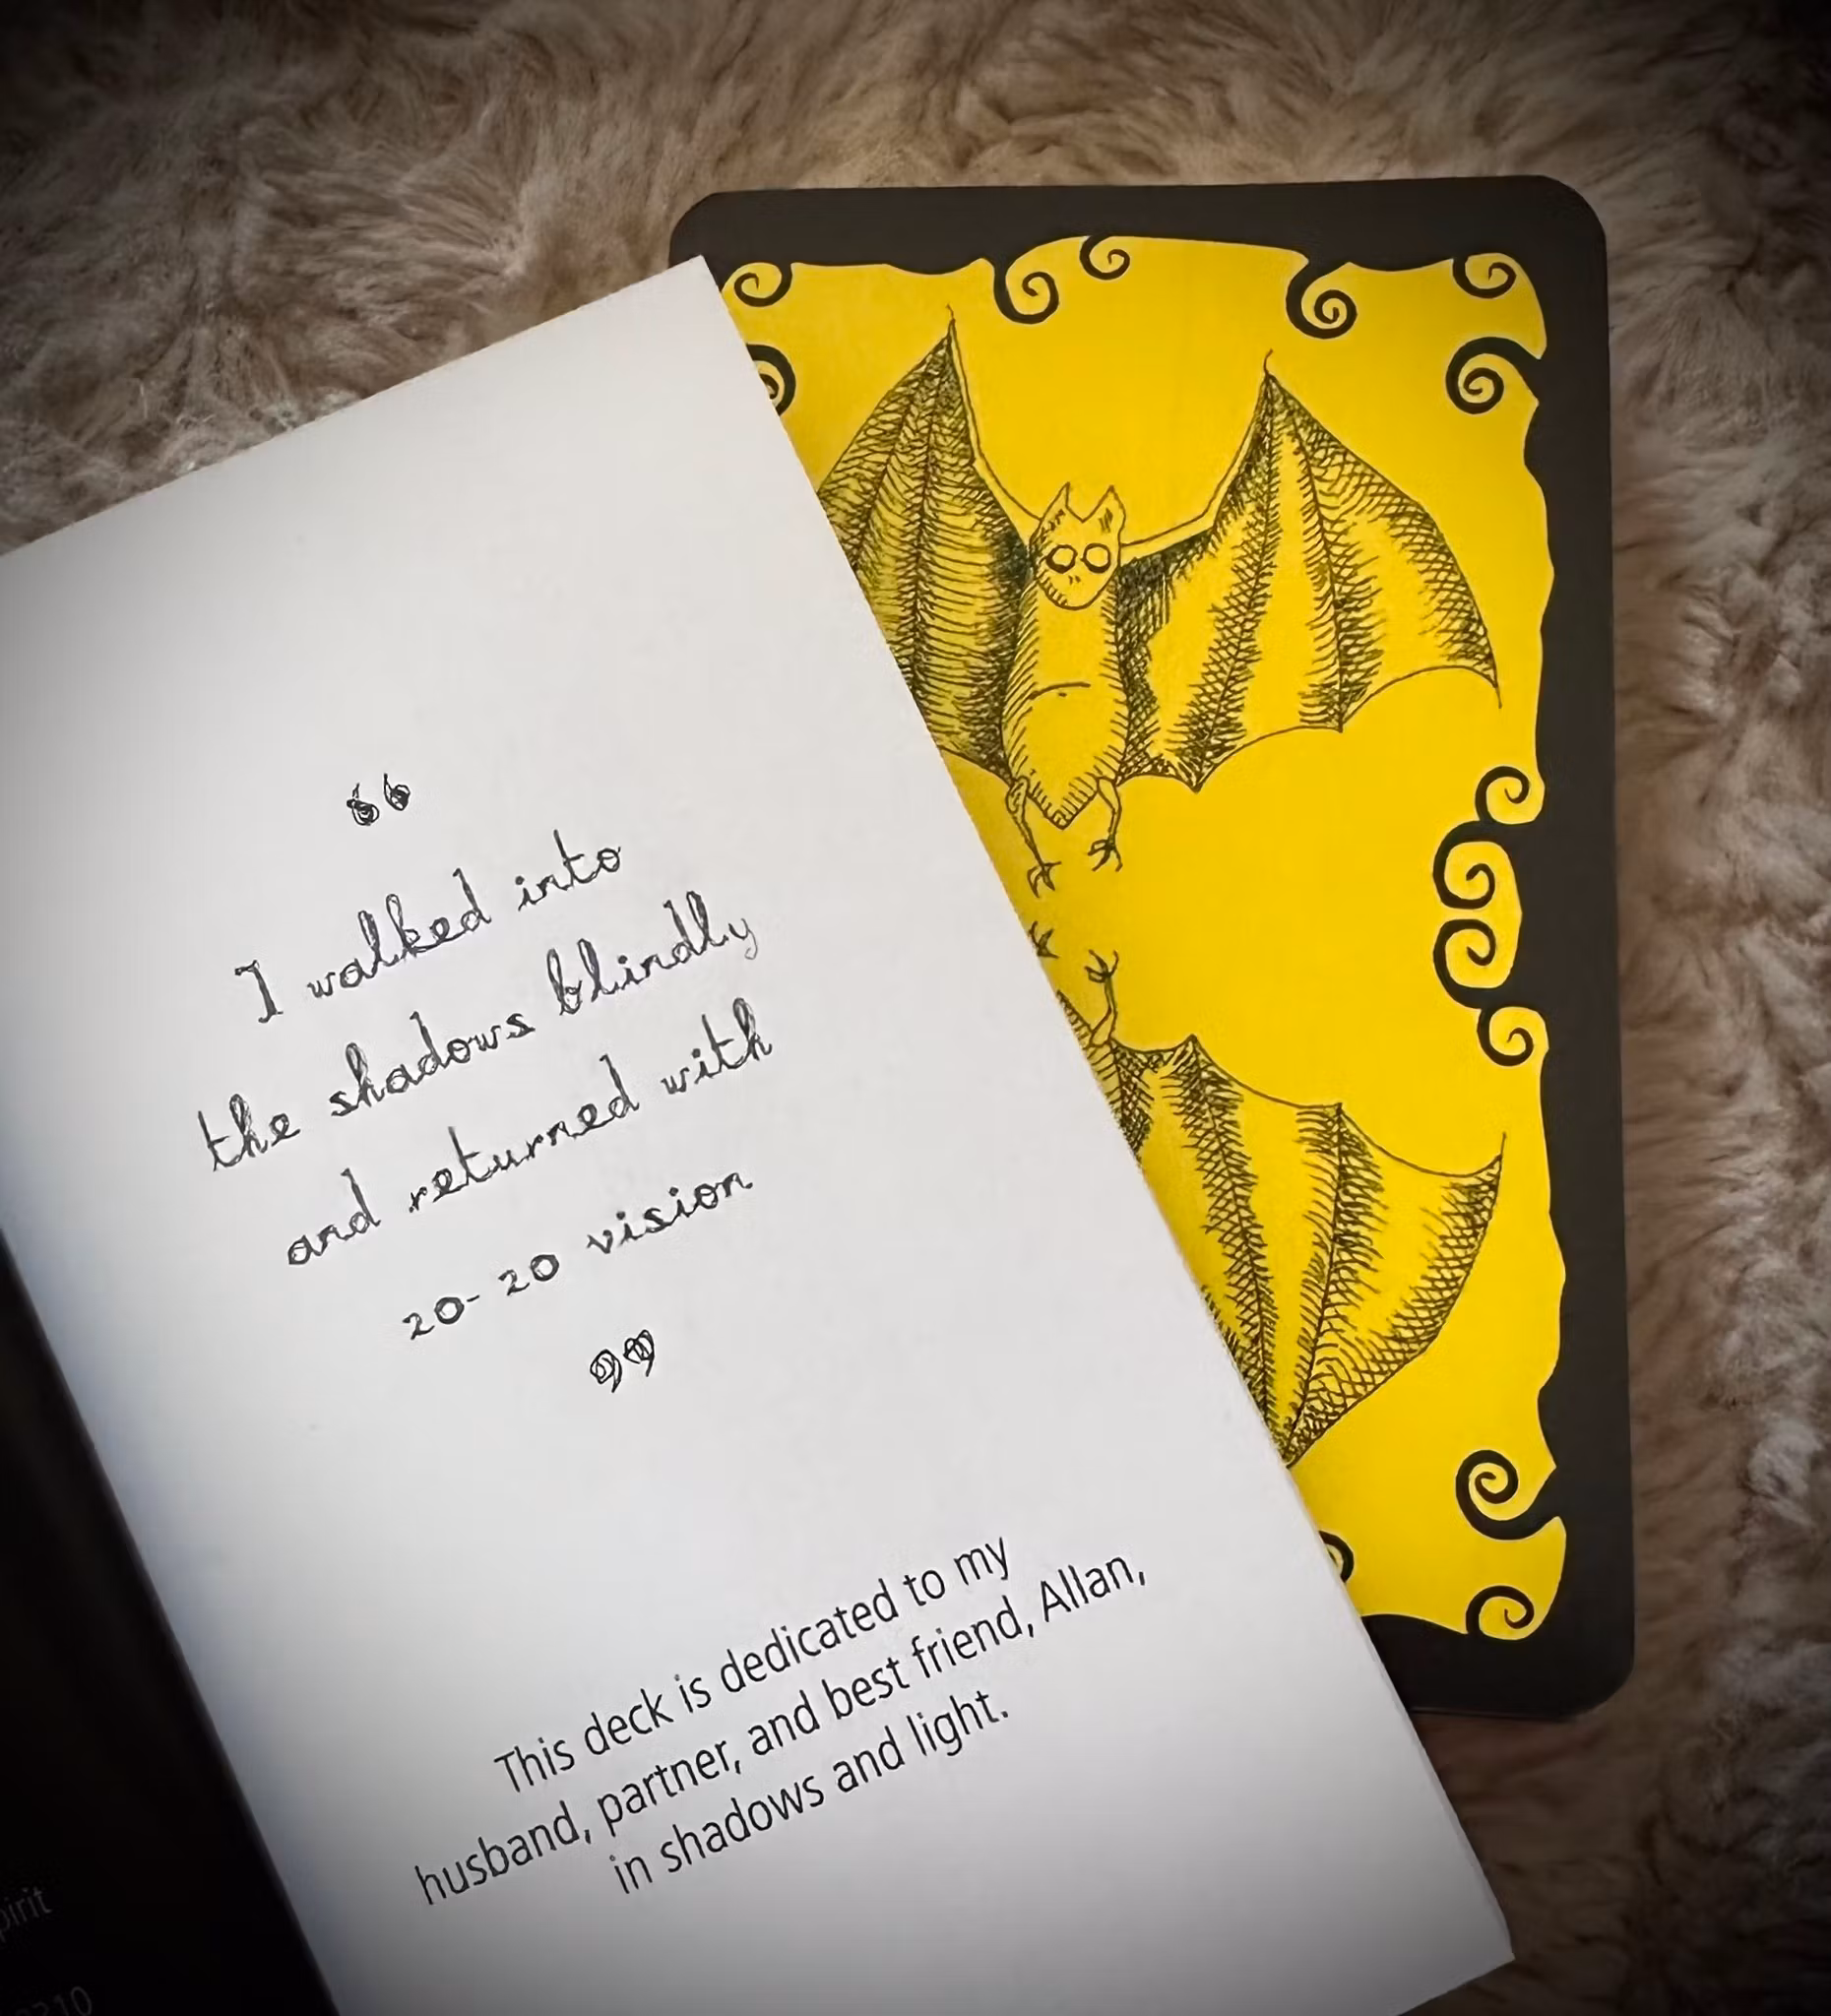 “
I walked into
the shadows blindly
and returned with
20-20 vision
”
This deck is dedicated to my
husband, partner, and best friend, Allan,
in shadows and light.